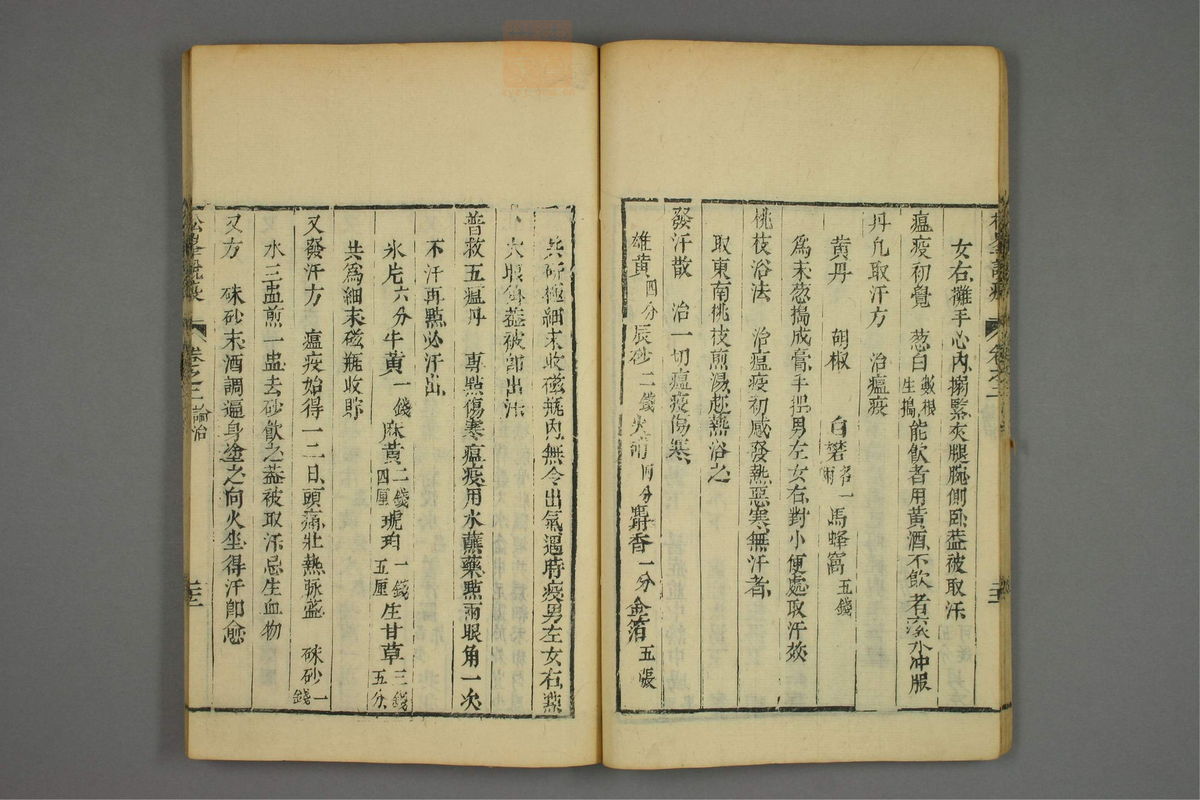 女右攤手心內搦緊夾腿腕側卧葢被取汗
瘟疫初覺　葱白數根生搗能飲者用黃酒不飲者滾水冲服
丹凢取汗方　治瘟疫
黃丹　胡椒　白礬各一兩馬蜂窩五錢
爲末葱搗成膏手捏男左女右對小便處取汗効
桃枝浴法　治瘟疫初感發熱惡寒無汗者
取東南桃枝煎湯趂熱浴之
發汗散　治一切瘟疫傷寒
雄黃四分辰砂二錢火硝四分麝香一分金箔五張
共研極細末收磁瓶內無令出氣遇時疫男左女右蘸
大眼角葢被卽出汗
普救五瘟丹　專點傷寒瘟疫用水蘸藥點兩眼角一次
不汗再點必汗出
氷片六分牛黃一錢麻黃二錢四厘琥珀一錢五厘生甘草三錢五分
共爲細末磁瓶收貯
又發汗方　瘟疫始得一二日頭痛壯熱脉盛　硃砂一錢
水三盅煎一盅去砂飲之葢被取汗忌生血物
又方　硃砂末酒調遍身塗之向火坐得汗卽愈
松峯說疫　卷之二　論治